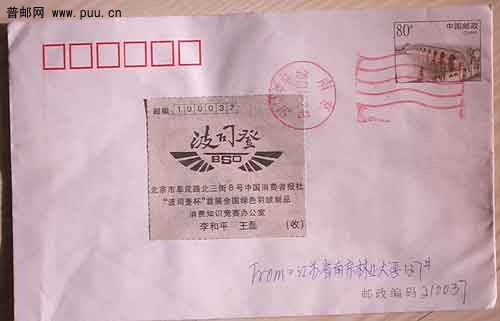 普邮网
www.puu.cn
80分
中国邮政
邮编:100037
波司登
BSD
北京市阜成路北三街8号中国消费者报社
"波司登杯"首届全国绿色羽绒制品
消费知识竞赛办公室
李和平 王磊 (收)
From:江苏省南京林业大学
邮政编码 210037